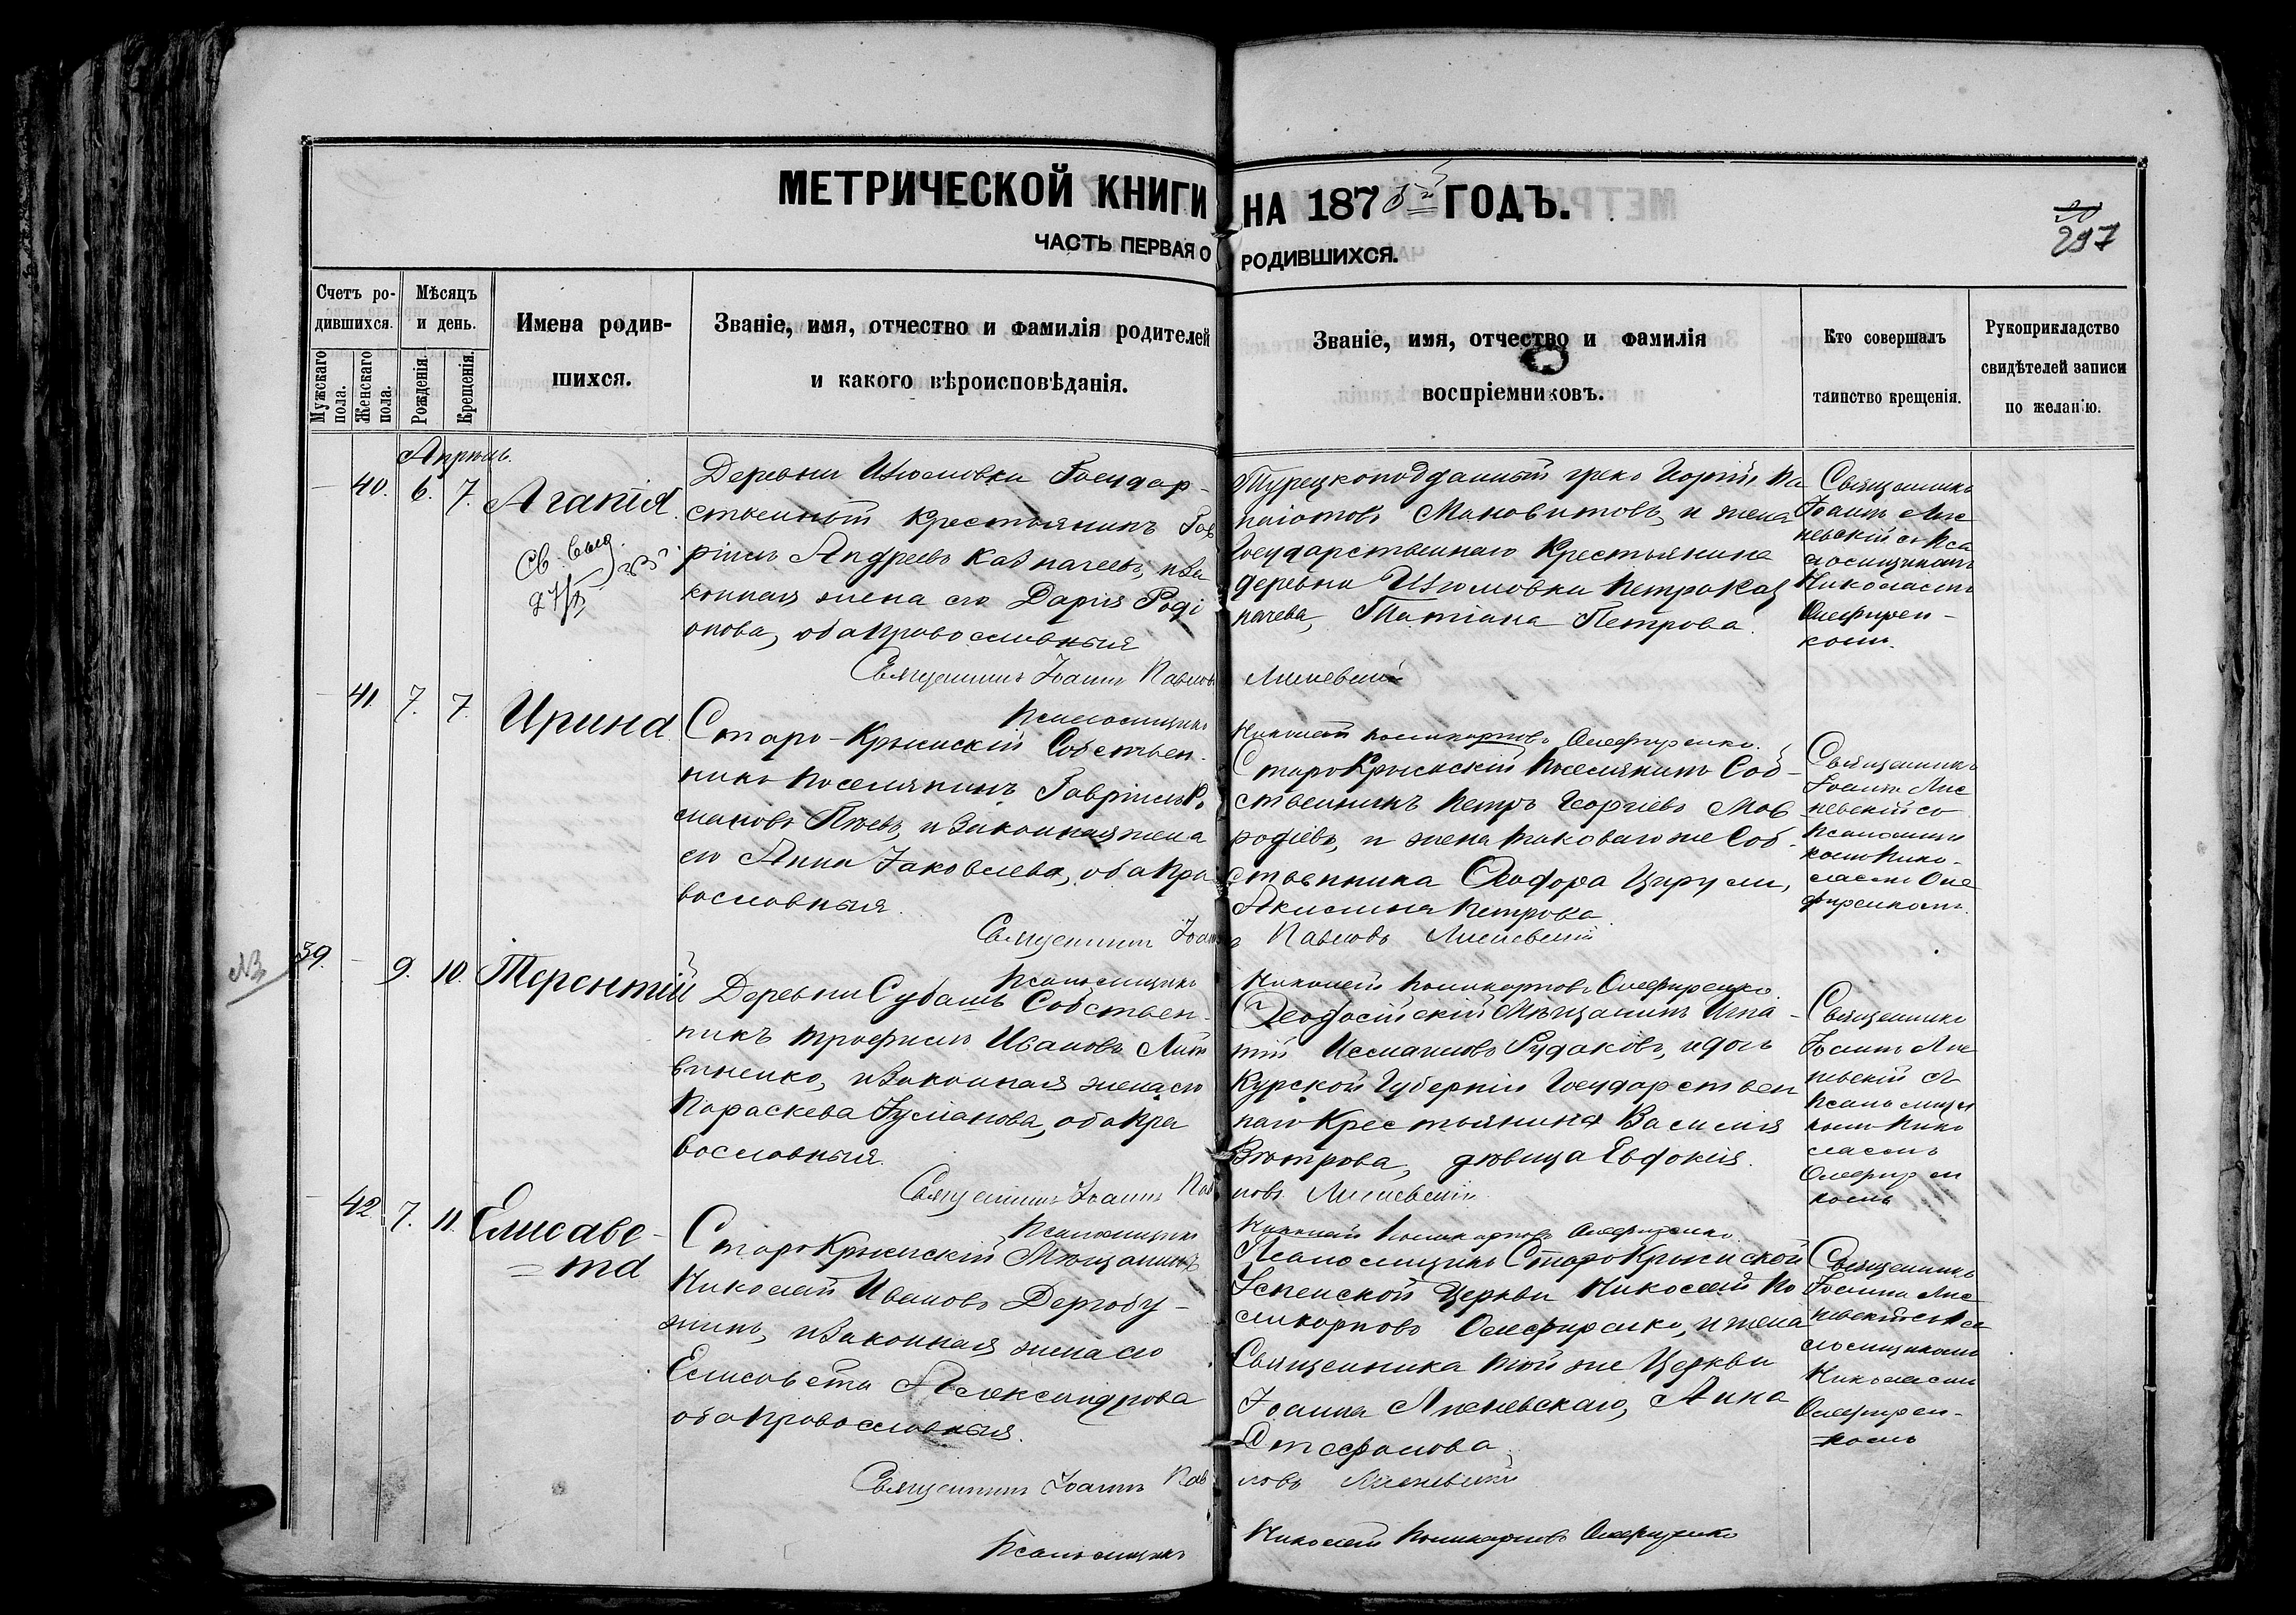 МЕТРИЧЕСКОЙ КНИГИ НА 187 ГОДЪ.
297
ЧАСТЬ ПЕРВАЯ О РОДИВШИХСЯ.
Счетъ ро-
дившихся.
Мужскаго пола.
Женскаго пола.
Мѣсяцъ
и день.
Рожденія
Крещенія.
Имена родив-
шихся.
Званіе, имя, отчество и фамилія родителей
и какого вѣроисповѣданія.
Званіе, имя, отчество и фамилія
воспріемниковъ.
Кто совершалъ
таинство крещенія.
Рукоприкладство
свидѣтелей записи
по желанію.
Апрѣль.
40. 6. 7. Агапія
Св. выд.
Деревни Изюмовки Государ-
ственный крестьянинъ Гав
ріилъ Андреевъ Казначеевъ, и за
конная жена его Дарія Роді
онова, оба православныя
Турецкоподданный грекъ Георгій Па
наіотовъ, и жена
Государственнаго Крестьянина
деревни Изюмовки Петра Каз
начева, Татіана Петрова.
Священникъ
Іоаннъ Лис
невскій съ Пса
ломщикомъ
Николаемъ
Олефирен-
комъ.
Священникъ Іоаннъ Павловъ Лисневскій
Псаломщикъ Николай Поликарповъ Олефиренко.
41 7. 7. Ирина
Старо-Крымскій Собствен-
никъ Поселянинъ Гавріилъ Ро
мановъ, и законная жена
его Анна Іаковлева, оба пра
вославныя.
Старо Крымскій Поселянинъ Соб-
ственникъ Петръ Георгіевъ Мав
родіевъ, и жена таковаго же Соб-
ственника Ѳеодора Цирули,
Акилина Петрова.
Священникъ
Іоаннъ Лис
невскій съ
Псаломщи
комъ Нико-
лаемъ Оле
фиренкомъ.
Священникъ Іоаннъ Павловъ Лисневскій
Псаломщикъ Николай Поликарповъ Олефиренко.
39. 9. 10. Терентій
Деревни Субашъ Собствен-
никъ Трофимъ Ивановъ Лит
виненко, и законная жена его
Параскева Іуліанова, оба пра
вославныя.
Ѳеодосійскій Мѣщанинъ Игна-
тій Рудаковъ, и дочь
Курской Губерніи Государствен
наго Крестьянина Василія
Вѣтрова, дѣвица Евдокія.
Священникъ
Іоаннъ Лис
невскій съ
Псаломщи
комъ Нико
лаемъ
Олефирен
комъ
Священникъ Іоаннъ Павловъ Лисневскій
Псаломщикъ Николай Поликарповъ Олефиренко.
42. 7. 11. Елисаве-
та
Старо Крымскій Мѣщанинъ
Николай Ивановъ,
и законная жена его
Елисавета Александрова
оба православныя.
Псаломщикъ Старо Крымской
Успенской Церкви Николай По
ликарповъ Олефиренко, и жена
Священника той же Церкви
Іоанна Лисневскаго, Анна
Стефанова.
Священникъ
Іоаннъ Лис
невскій съ Пса
ломщикомъ
Николаемъ
Олефирен-
комъ
Священникъ Іоаннъ Павловъ Лисневскій
Псаломщикъ Николай Поликарповъ Олефиренко